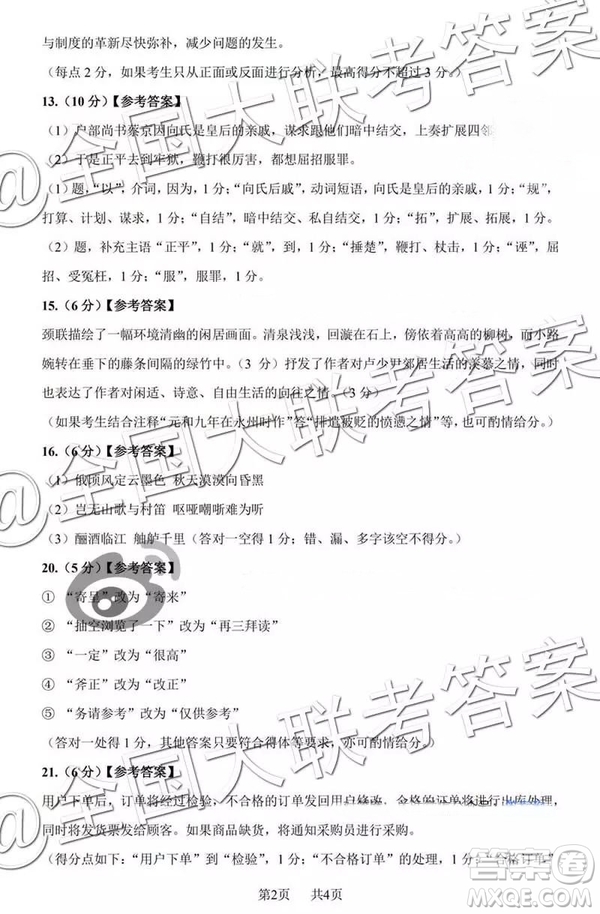 与制度的革新尽快弥补，减少问题的发生。
（每点 2 分，如果考生只从正面或反面进行分析，最高得分不超过 3 分。）
13.（10 分）【参考答案】
（1）户部尚书蔡京因向氏是皇后的亲戚，谋求跟他们暗中结交，上奏扩展四邻
（2）于是正平去到牢狱，鞭打很厉害，都想屈招服罪。
（1）题，“以”，介词，因为，1 分；“向氏后戚”，动词短语，向氏是皇后的亲戚，1 分；“规”，
打算、计划、谋求，1 分；“自结”，暗中结交、私自结交，1 分；“拓”，扩展、拓展，1 分。
（2）题，补充主语“正平”，1 分；“就”，到，1 分；“捶楚”，鞭打、杖击，1 分；“诬”，屈
招、受冤枉，1 分；“服”，服罪，1 分。
15.（6 分）【参考答案】
颈联描绘了一幅环境清幽的闲居画面。清泉浅浅，回漩在石上，傍依着高高的柳树，而小路
婉转在垂下的藤条间隔的绿竹中。（3 分）抒发了作者对卢少尹郊居生活的羡慕之情，同时
也表达了作者对闲适、诗意、自由生活的向往之情。（3 分）
(如果考生结合注释“元和九年在永州时作”答“排遣被贬的愤懑之情”等，也可酌情给分。)
16.（6 分）【参考答案】
（1）俄顷风定云墨色 秋天漠漠向昏黑
（2）岂无山歌与村笛 呕哑嘲哳难为听
（3）酾酒临江 舳舻千里（答对一空得 1 分；错、漏、多字该空不得分。）
20.（5 分）【参考答案】
① “寄呈”改为“寄来”
② “抽空浏览了一下”改为“再三拜读”
③ “一定”改为“很高”
④ “斧正”改为“改正”
⑤ “务请参考”改为“仅供参考”
（答对一处得 1 分，其他答案只要符合得体等要求，可酌情给分。）
21.（6 分）【参考答案】
用户下单后，订单将经过检验，不合格的订单发回用户修改，合格的订单将进行出库处理，
同时将发货票发给顾客。如果商品缺货，将通知采购员进行采购。
（得分点如下：“用户下单”到“检验”，1 分；“不合格订单”的处理，1 分；“合格订单”
第2页 共4页
@全国大联考答案
@全国大联考答案
@全国大联考答案
答案圈
MXQE.COM